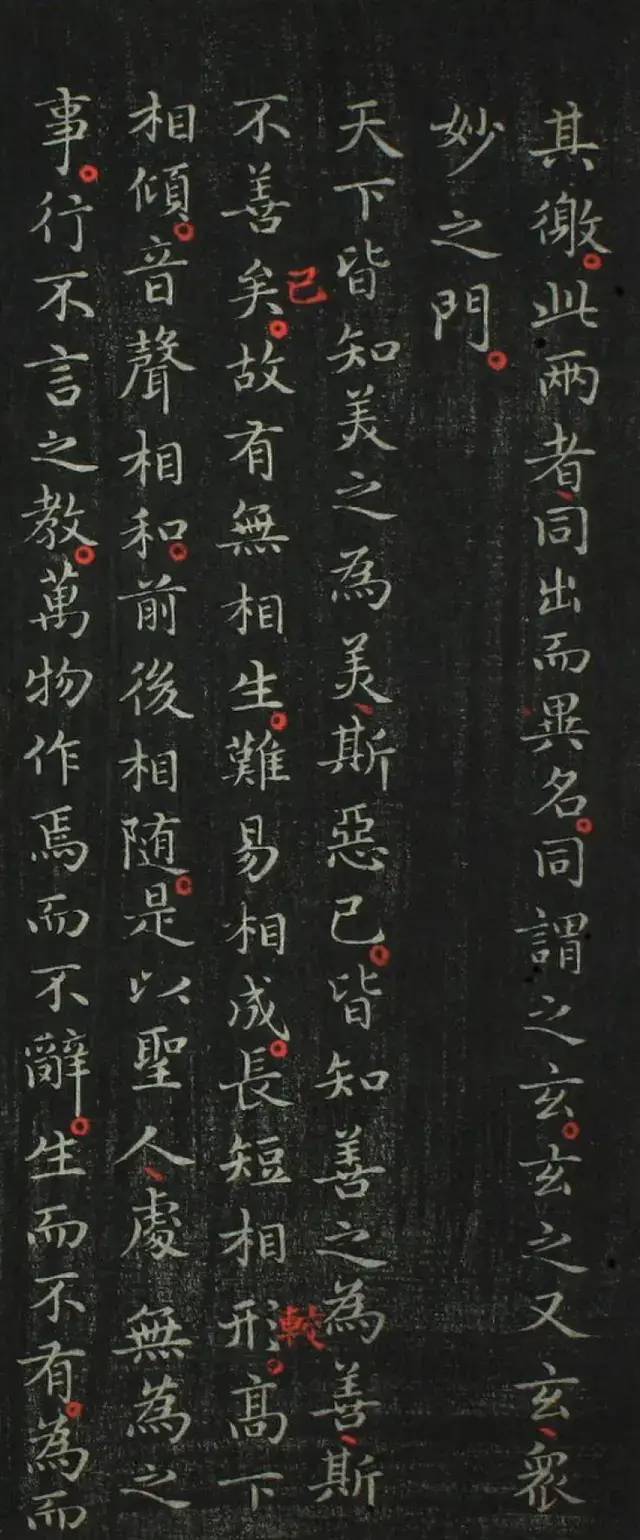 其徼。此兩者、同出而異名。同謂之玄。玄之又玄、衆
妙之門。
天下皆知美之為美、斯惡已。皆知善之為善、斯
已
較
不善矣。故有無相生。難易相成。長短相形。高下
相傾。音聲相和。前後相随。是以聖人、處無為之
事。行不言之教。萬物作焉而不辭。生而不有。為而